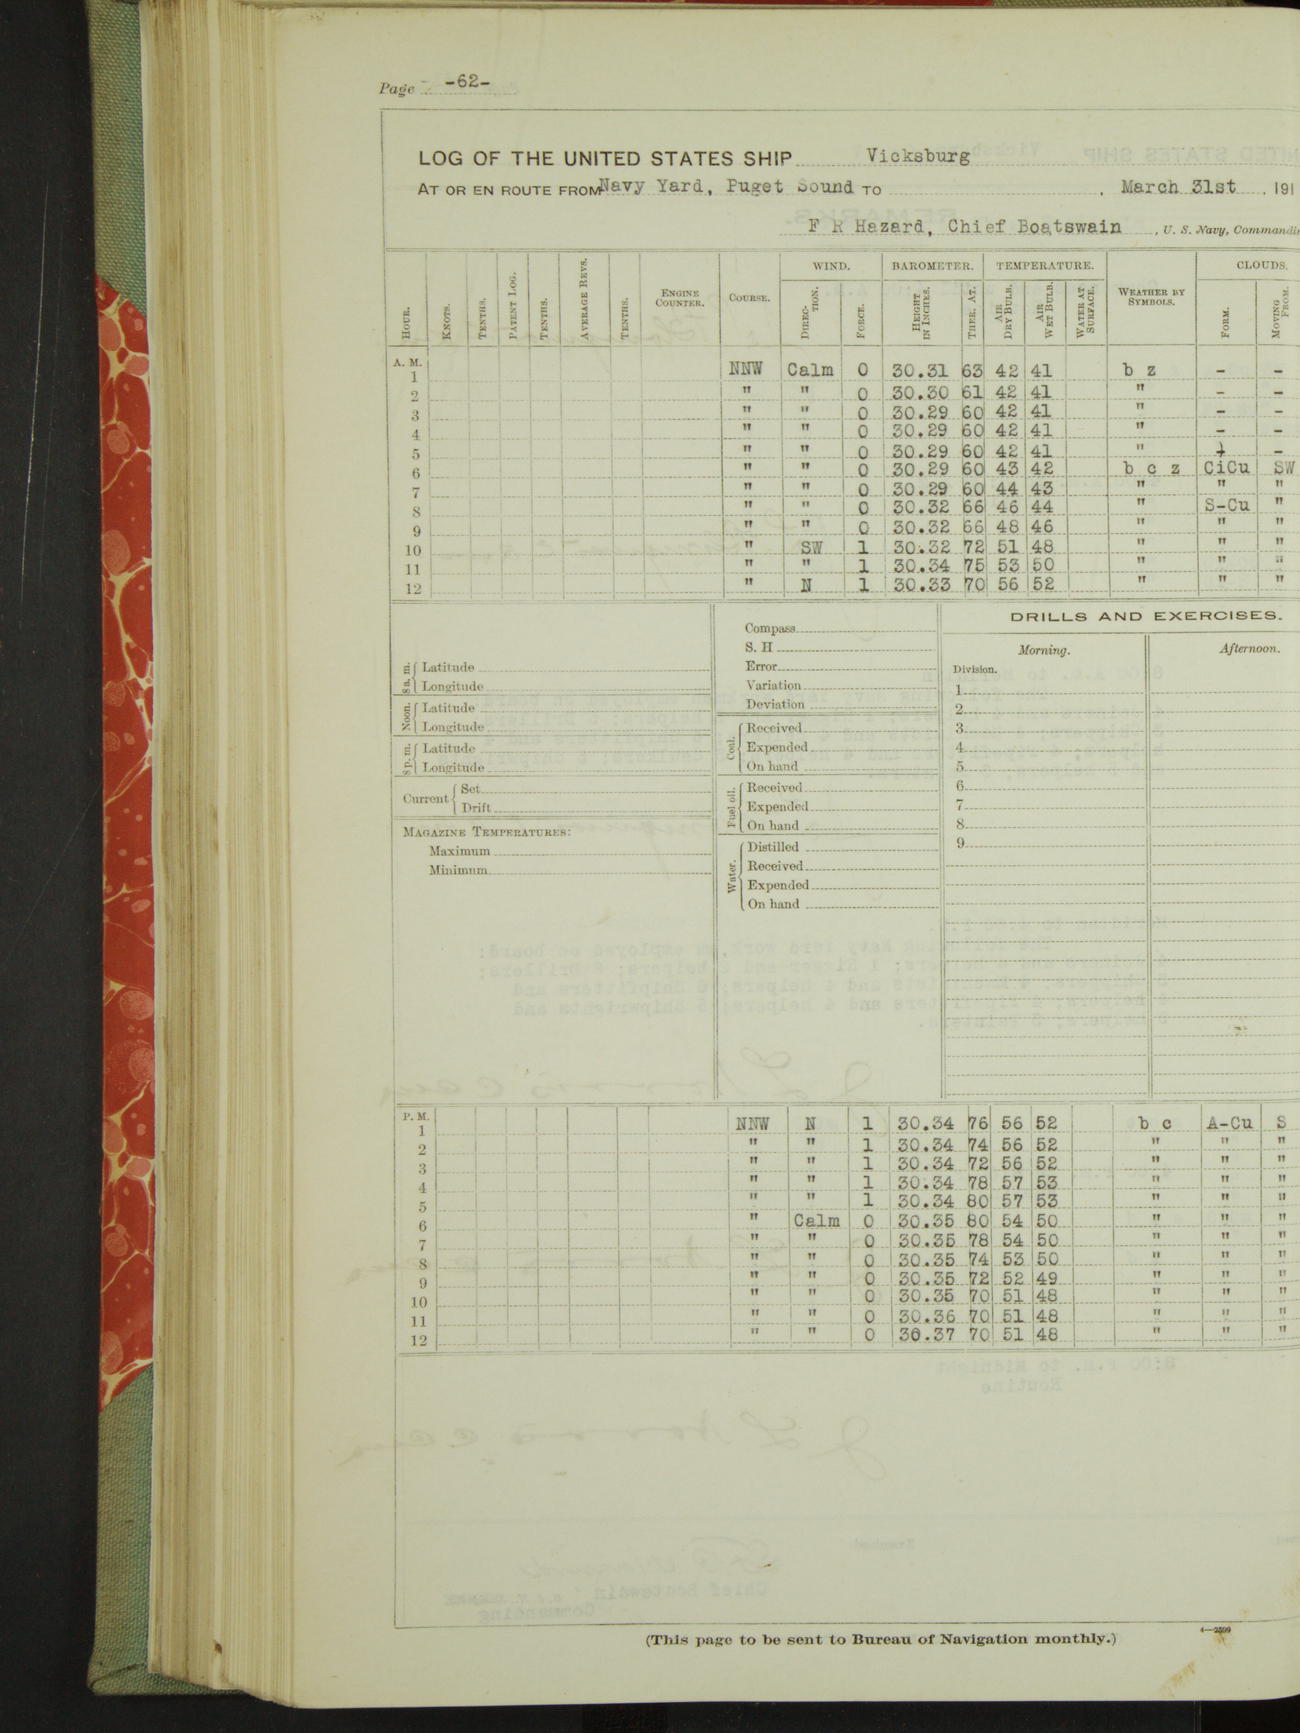 Page -62-
LOG OF THE UNITED STATES SHIP Vicksburg
AT OR EN ROUTE FROM Navy Yard, Puget Sound TO , March 31st , 191
F R Hazard, Chief Boatswain , U. S. Navy, Commandi
HOUR. KNOTS. TENTHS. PATENT LOG. TENTHS. AVERAGE REVS. TENTHS. ENGINE COUNTER. COURSE. WIND. DIRECTION. FORCE. BAROMETER. HEIGHT IN INCHES. THER. AT. TEMPERATURE. AIR DRY BULB. AIR WET BULB. WATER AT SURFACE. WEATHER BY SYMBOLS. CLOUDS. FORM. MOVING FROM.
A. M.
1 NNW Calm 0 30.31 63 42 41 b z - -
2 " " 0 30.30 61 42 41 " - -
3 " " 0 30.29 60 42 41 " - -
4 " " 0 30.29 60 42 41 " - -
5 " " 0 30.29 60 42 41 " -
6 " " 0 30.29 60 43 42 b c z CiCu SW
7 " " 0 30.29 60 44 43 " " "
8 " " 0 30.32 66 46 44 " S-Cu "
9 " " 0 30.32 66 48 46 " " "
10 " SW 1 30.32 72 51 48 " " "
11 " " 1 30.34 75 53 50 " " "
12 " N 1 30.33 70 56 52 " " "
8 a. m. Latitude
Longitude
Noon. Latitude
Longitude
8 p. m. Latitude
Longitude
Current Set
Drift
MAGAZINE TEMPERATURES:
Maximum
Minimum
Compass
S. H
Error
Variation
Deviation
Coal. Received
Expended
On hand
Fuel oil. Received
Expended
On hand
Water. Distilled
Received
Expended
On hand
DRILLS AND EXERCISES.
Morning. Afternoon.
Division.
1
2
3
4
5
6
7
8
9
P. M.
1 NNW N 1 30.34 76 56 52 b c A-Cu S
2 " " 1 30.34 74 56 52 " " "
3 " " 1 30.34 72 56 52 " " "
4 " " 1 30.34 78 57 53 " " "
5 " " 1 30.34 80 57 53 " " "
6 " Calm 0 30.35 80 54 50 " " "
7 " " 0 30.35 78 54 50 " " "
8 " " 0 30.35 74 53 50 " " "
9 " " 0 30.35 72 52 49 " " "
10 " " 0 30.35 70 51 48 " " "
11 " " 0 30.36 70 51 48 " " "
12 " " 0 30.37 70 51 48 " " "
(This page to be sent to Bureau of Navigation monthly.)